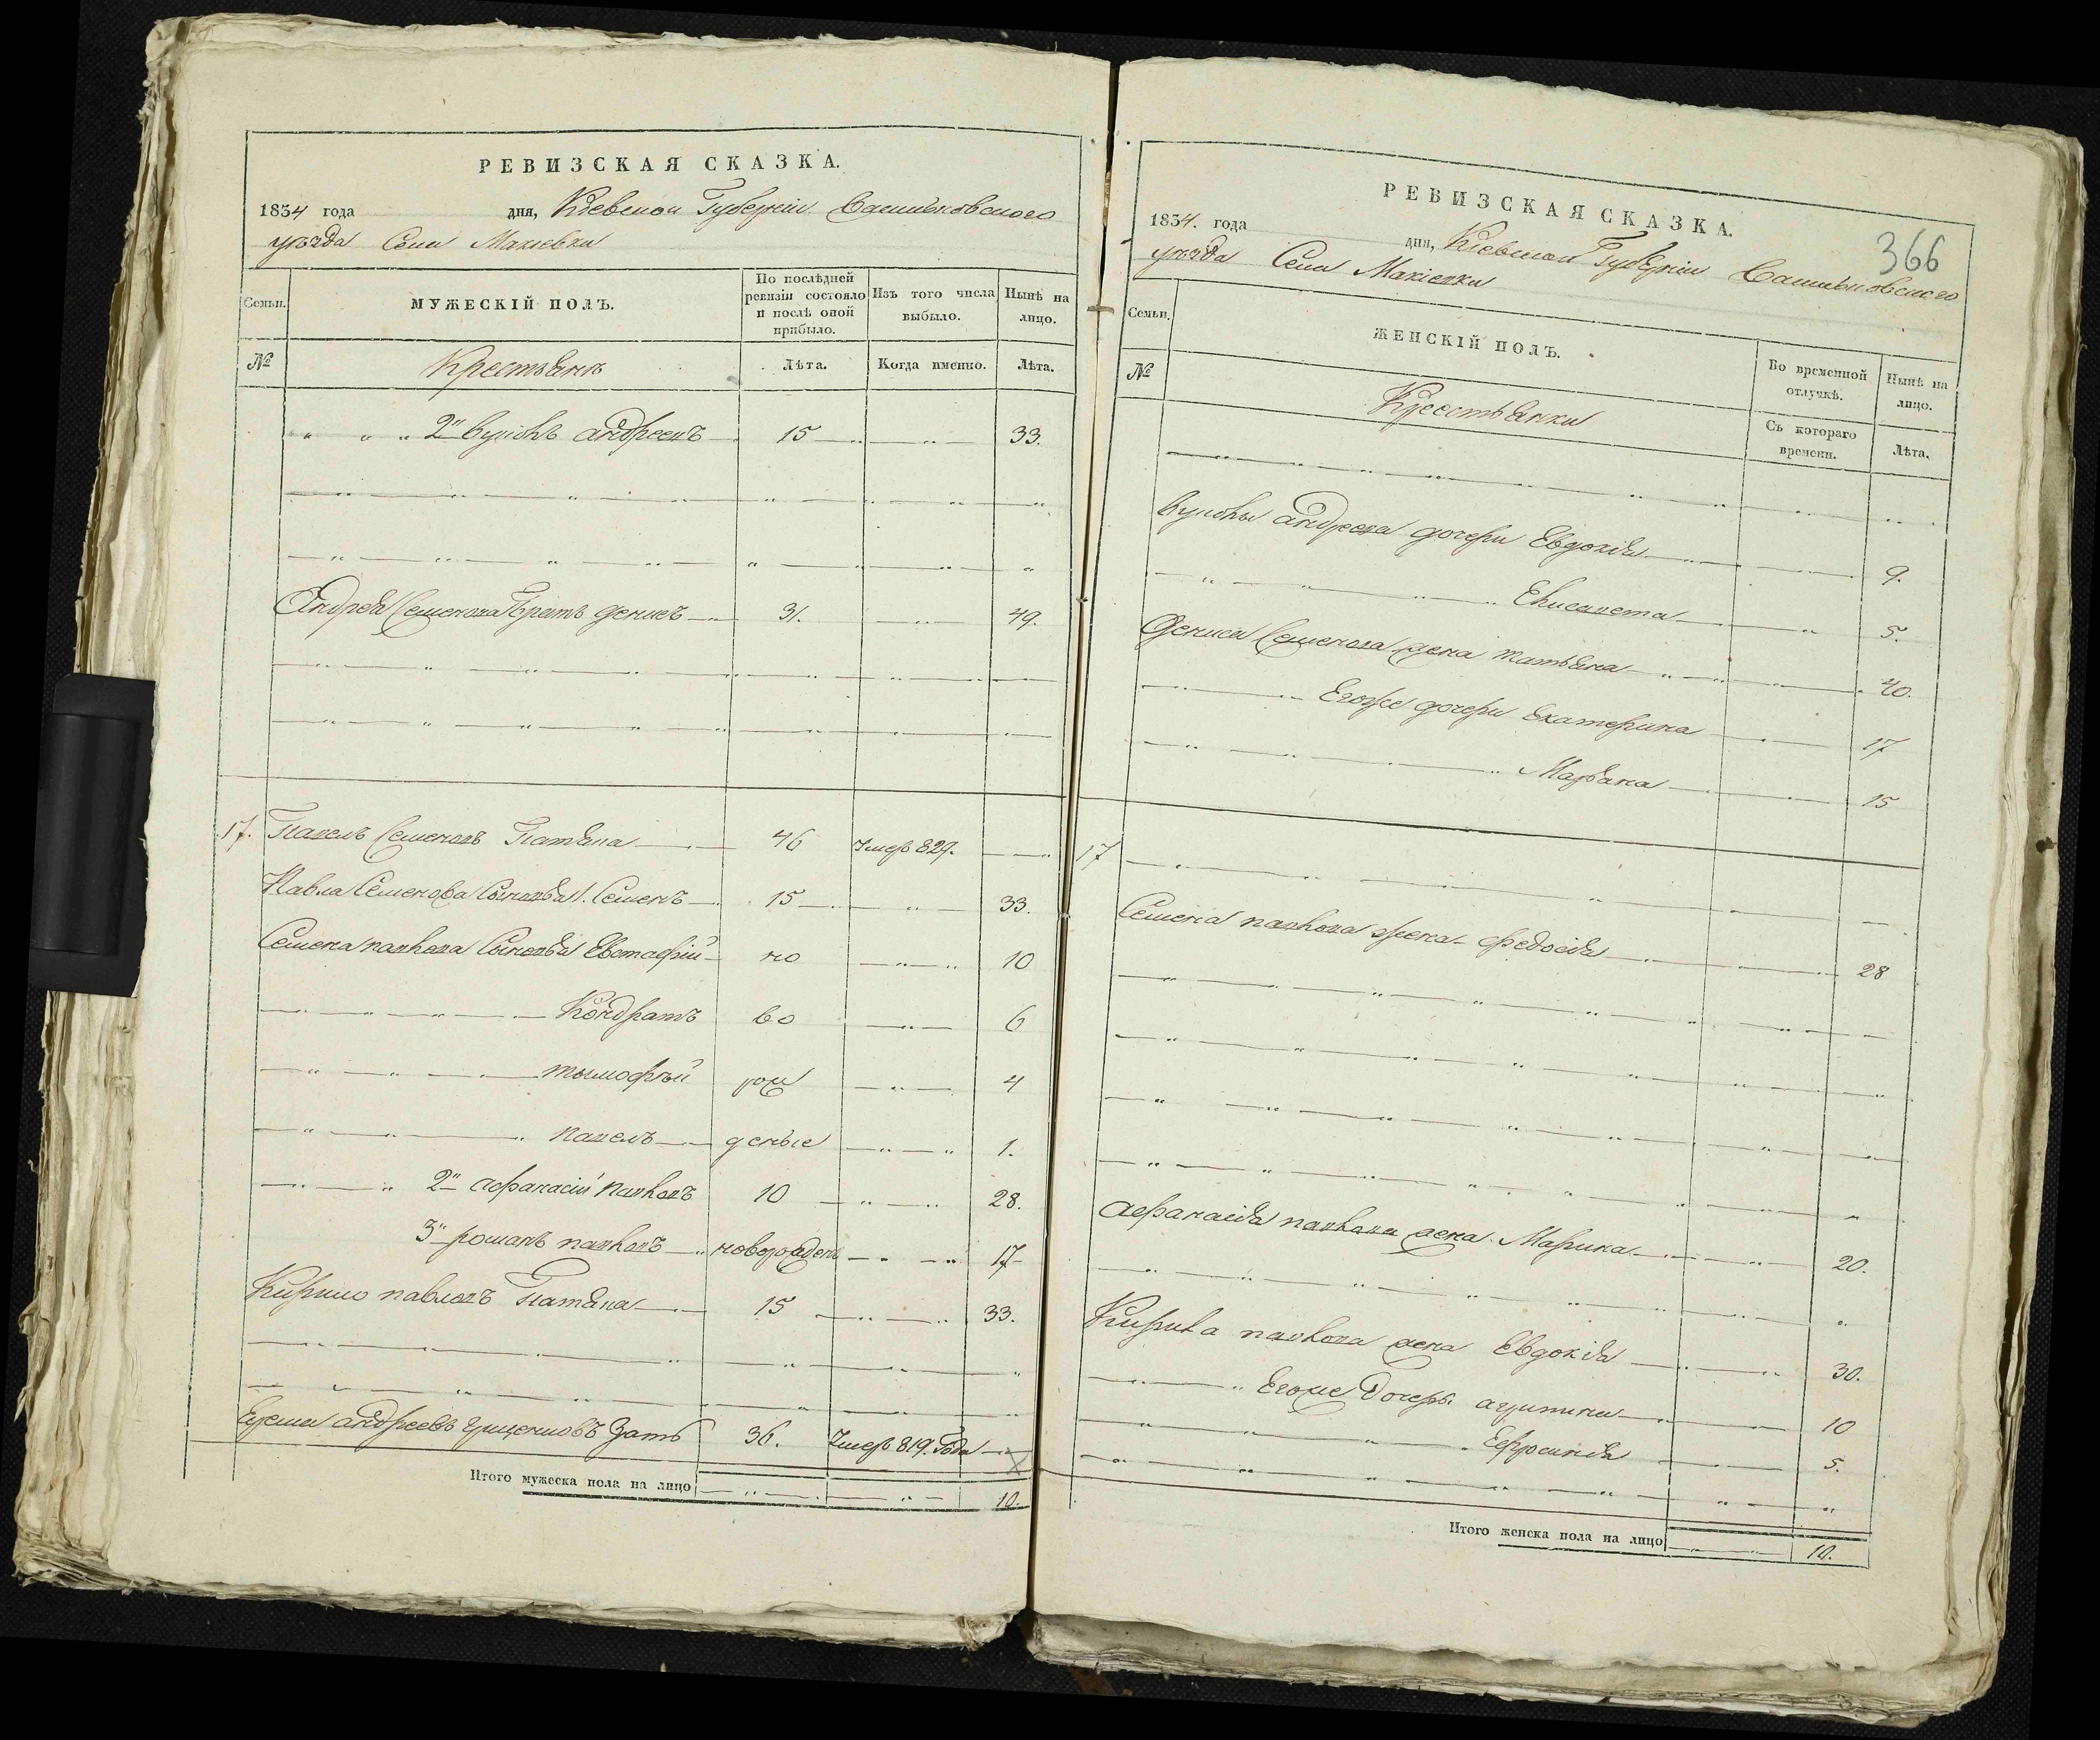 РЕВИЗСКАЯ СКАЗКА.
1834 года дня, Кіевской Губерніи Васильковского
уѣзда Села Макіевки
Семьи. МУЖЕСКІЙ ПОЛЪ. По послѣдней ревизіи состояло и послѣ оной прибыло. Изъ того числа выбыло. Нынѣ на лицо.
№ Крестьянъ Лѣта. Когда именно. Лѣта.
" " " 2й андреевъ 15 " 33.
Андрея Семенова братъ денисъ 31. " 49.
17. Павелъ Семеновъ 46 Умер 829.
Павла Семенова Сыновья 1. Семенъ 15 " 33.
Семена павлова Сыновья Евстафій но " 10
Кондратъ во " 6
тымофѣй рож " 4
павелъ деные " 1.
2й афанасій павловъ 10 " 28.
3й романъ павловъ новорожден " 17
Кирило павловъ 15 " 33.
андреевъ зять 36. Умер 819. Года
Итого мужеска пола на лицо " " 10.
РЕВИЗСКАЯ СКАЗКА.
366
1834. года дня, Кіевской Губерніи Васильковского
уѣзда Села Макіевки
Семьи. ЖЕНСКІЙ ПОЛЪ. Во временной отлучкѣ. Нынѣ на лицо.
№ Крестьянки Съ котораго времени. Лѣта.
андреева дочери Евдокія 9.
Елисавета " 5.
Дениса Семенова жена татьяна " 40.
Егоже дочери Екатерина " 17
Марьяна " 15
17
Семена павлова жена федосія " 28
афанасія павлова жена Марина " 20.
Кирила павлова жена Евдокія " 30.
Егоже Дочерь 10
Ефросинія 5.
Итого женска пола на лицо " " 10.